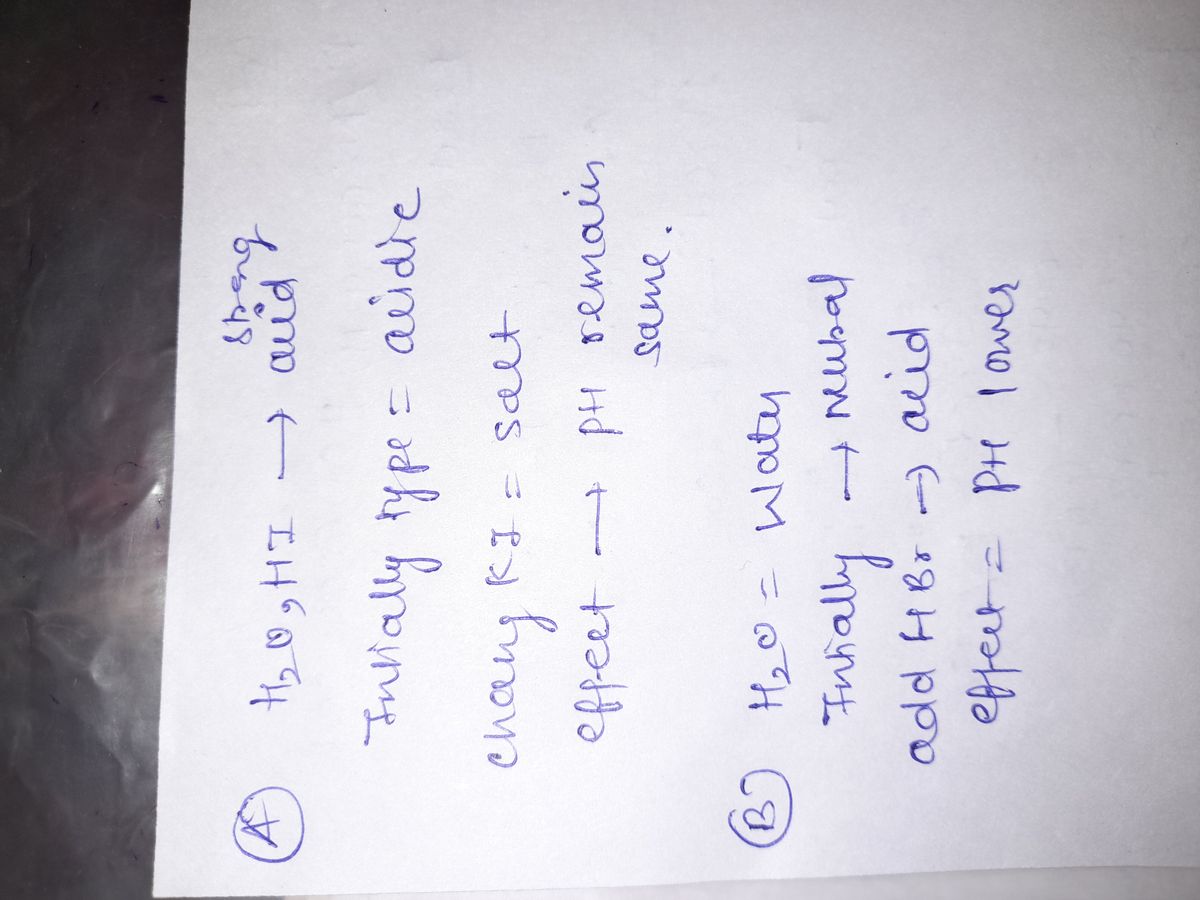 strong
(A) H₂O, HI → acid
Initially type = acidic
chang KI = salt
effect → pH remain
same.
(B) H₂O = Water
Initially → neutral
add HBr → acid
effect = pH lower